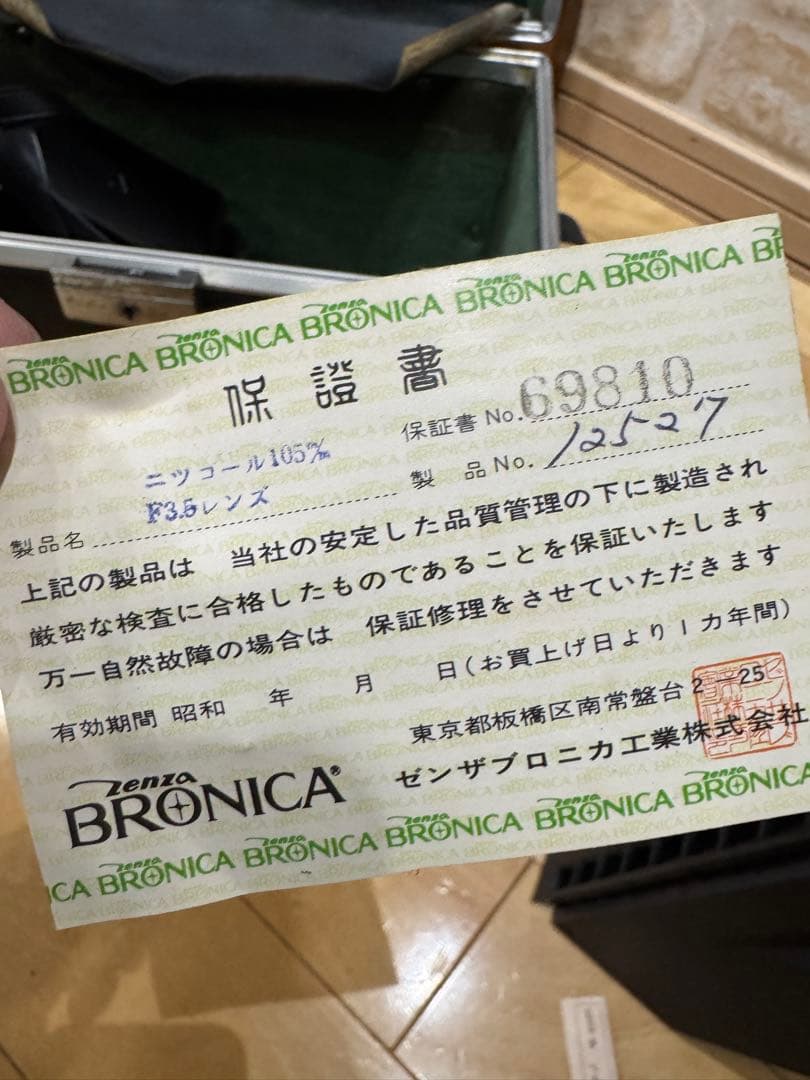 Zenza BRONICA Zenza BRONICA Zenza BRONICA Zenza BRONICA Zenza BRONICA B
保證書
保証書 No. 69810
製品No. 12527
ニツコール105㎜
F3.5レンズ
製品名
上記の製品は 当社の安定した品質管理の下に製造され
厳密な検査に合格したものであることを保証いたします
万一自然故障の場合は 保証修理をさせていただきます
有効期間 昭和 年 月 日(お買上げ日より1カ年間)
東京都板橋区南常盤台2-25
ゼンザブロニカ工業株式会社
Zenza BRONICA®
CA Zenza BRONICA Zenza BRONICA Zenza BRONICA Zenza BRONICA Zenza BRONICA